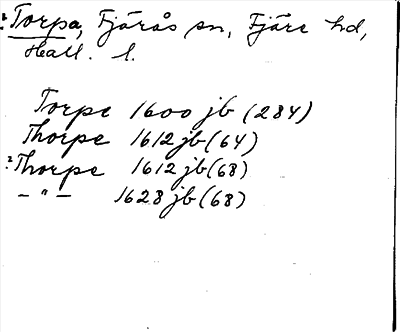 ²Torpa, Fjärås sn, Fjäre hd,
Hall. l.
Torpe 1600 jb (284)
Thorpe 1612 jb (64)
²Thorpe 1612 jb (68)
— " — 1628 jb (68)